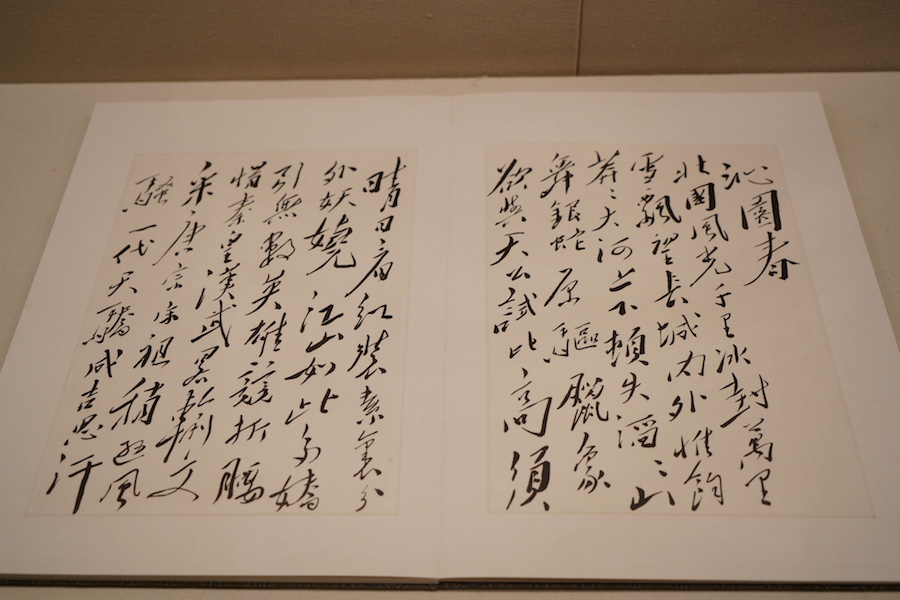 沁園春
北國風光千里冰封萬里
雪飄望長城内外惟餘
莽々大河上下頓失滔々山
舞銀蛇原驅臘象
欲與天公試比高須
晴日看紅裝素裹分
外妖嬈江山如此多嬌
引無數英雄競折腰
惜秦皇漢武略輸文
采唐宗宋祖稍遜風
騷一代天驕成吉思汗